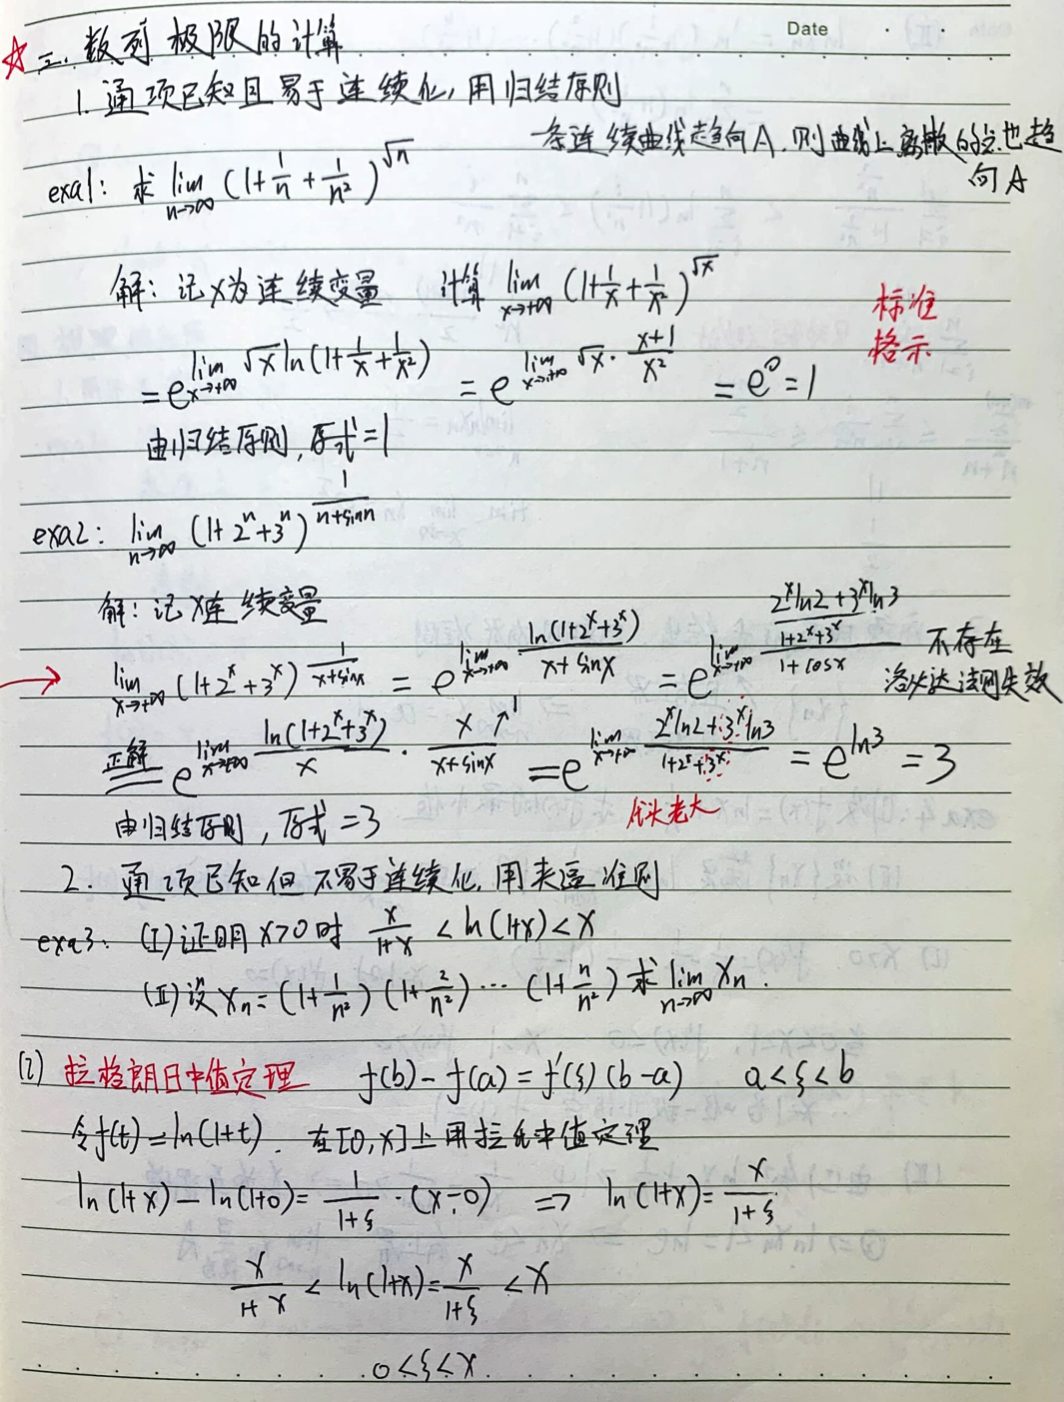 Date
☆ 三. 数列极限的计算
1. 通项已知且易于连续化, 用归结原则
一条连续曲线趋向A, 则曲线上离散的点也趋向A
exa1: 求 lim_{n→∞} (1+1/n+1/n²)^{√n}
解: 记x为连续变量 计算 lim_{x→+∞} (1+1/x+1/x²)^{√x}
标准格示
= e^{lim_{x→+∞} √x ln(1+1/x+1/x²)} = e^{lim_{x→+∞} √x · (x+1)/x²} = e^0 = 1
由归结原则, 原式=1
exa2: lim_{n→∞} (1+2^n+3^n)^{1/(n+sinn)}
解: 记x连续变量
→ lim_{x→+∞} (1+2^x+3^x)^{1/(x+sinx)} = e^{lim_{x→+∞} ln(1+2^x+3^x)/(x+sinx)} = e^{lim_{x→+∞} ((2^x ln2+3^x ln3)/(1+2^x+3^x))/(1+cosx)} 不存在 洛必达法则失效
正解 e^{lim_{x→+∞} ln(1+2^x+3^x)/x · x/(x+sinx) ↗1} = e^{lim_{x→+∞} (2^x ln2+3^x ln3)/(1+2^x+3^x)} = e^{ln3} = 3
由归结原则, 原式=3
老大
2. 通项已知但不易于连续化, 用夹逼准则
exa3: (I) 证明 x>0时 x/(1+x) < ln(1+x) < x
(II) 设 x_n = (1+1/n²)(1+2/n²)⋯(1+n/n²) 求 lim_{n→∞} x_n.
(1) 拉格朗日中值定理 f(b)-f(a)=f'(ξ)(b-a) a<ξ<b
令f(t)=ln(1+t). 在[0,x]上用拉氏中值定理
ln(1+x)-ln(1+0)= 1/(1+ξ) ·(x-0) ⇒ ln(1+x)= x/(1+ξ)
x/(1+x) < ln(1+x)= x/(1+ξ) < x
0<ξ<x